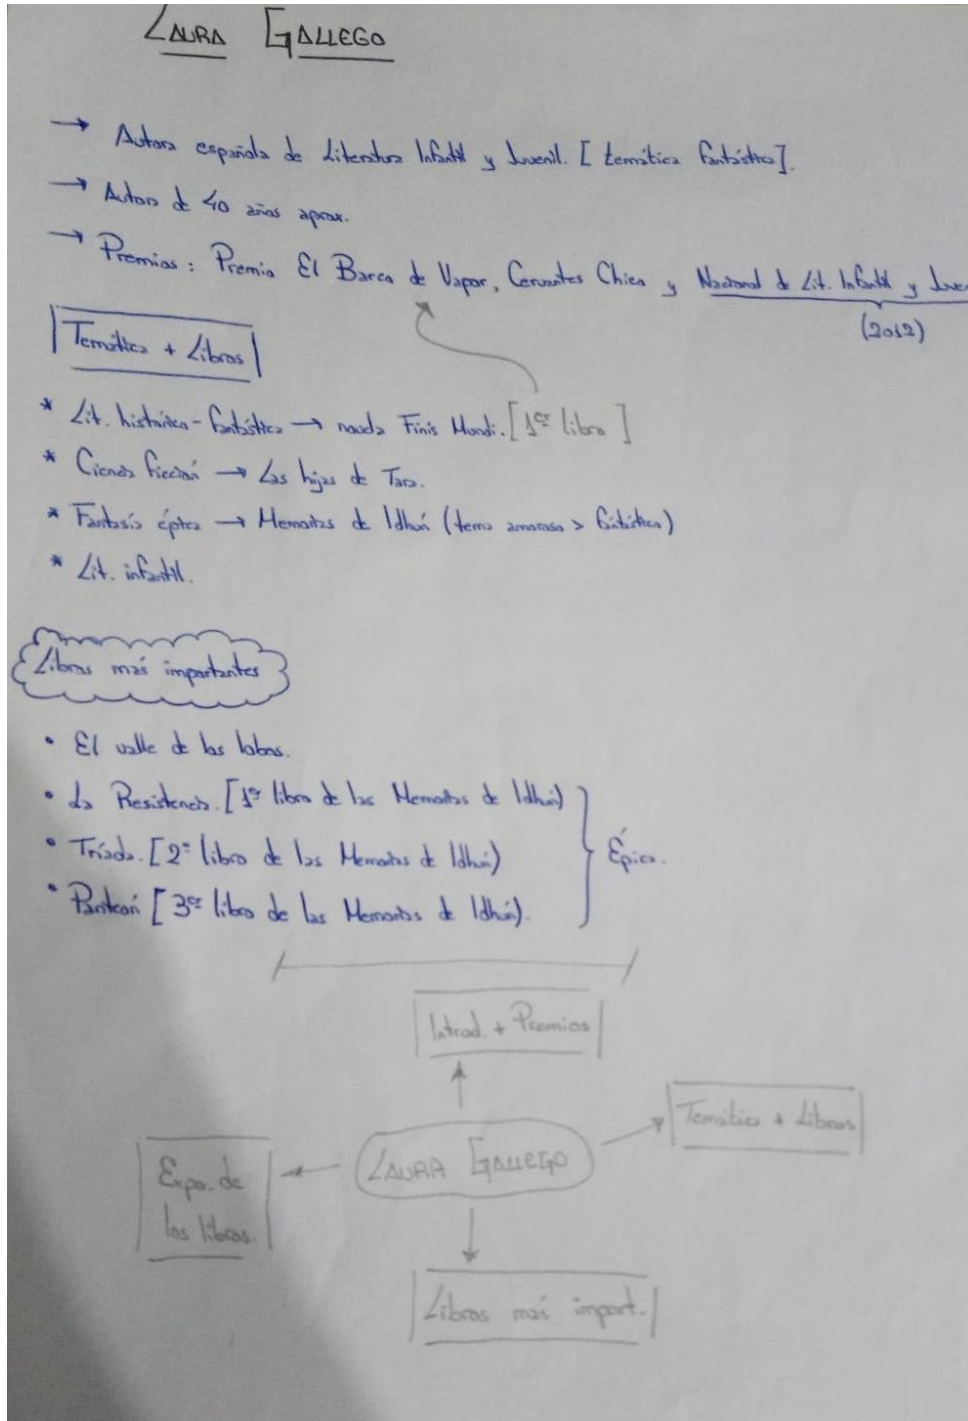 LAURA GALLEGO
→ Autora española de Literatura Infantil y Juvenil. [temática fantástica].
→ Autora de 40 años aprox.
→ Premios: Premio El Barco de Vapor, Cervantes Chico y Nacional de Lit. Infantil y Juve
(2012)
Temática + Libros
* Lit. histórico-fantástica → novela Finis Mundi. [1er libro]
* Ciencia ficción → Las hijas de Tara.
* Fantasía épica → Memorias de Idhún (tema amoroso > fantástico)
* Lit. infantil.
Libros más importantes
• El valle de los lobos.
• La Resistencia. [1er libro de las Memorias de Idhún)
• Tríada. [2º libro de las Memorias de Idhún)
• Panteón [3er libro de las Memorias de Idhún).
Épica.
Introd. + Premios
Temática + Libros
LAURA GALLEGO
Expo. de
los libros.
Libros más import.